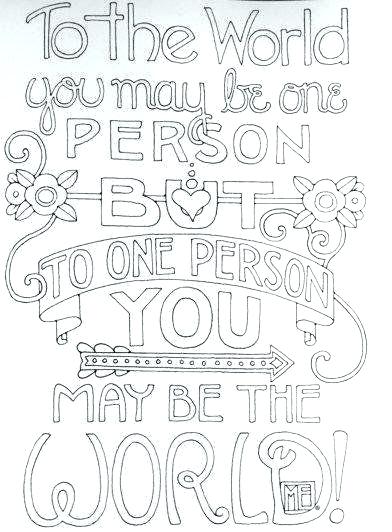 To the World
you may be one
PERSON
BUT
TO ONE PERSON
YOU
MAY BE THE
WORLD!
ME